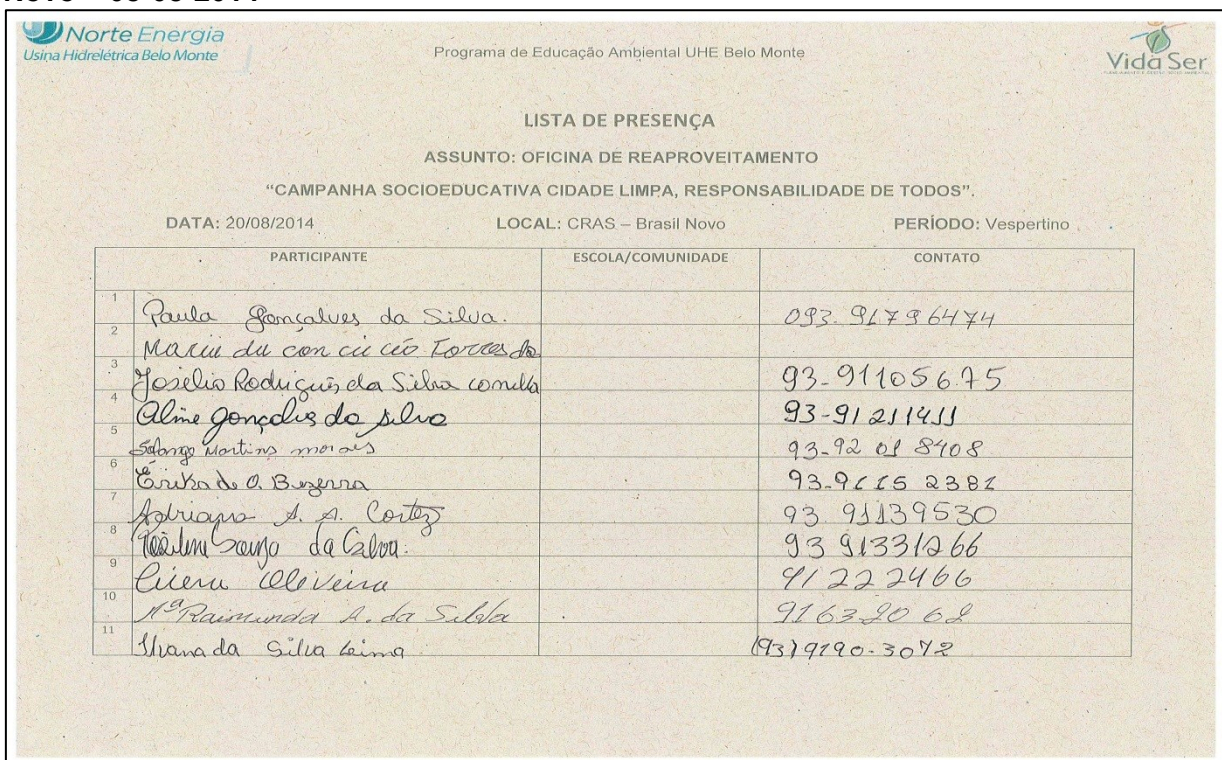 Norte Energia
Usina Hidrelétrica Belo Monte
Programa de Educação Ambiental UHE Belo Monte
Vida Ser
LISTA DE PRESENÇA
ASSUNTO: OFICINA DE REAPROVEITAMENTO
“CAMPANHA SOCIOEDUCATIVA CIDADE LIMPA, RESPONSABILIDADE DE TODOS”.
DATA: 20/08/2014 LOCAL: CRAS – Brasil Novo PERÍODO: Vespertino
PARTICIPANTE ESCOLA/COMUNIDADE CONTATO
1 Paula Gonçalves da Silva. 093. 91796474
2 Maria da con cic ció Torres da
3 Joselio Rodrigues da Silva 93-91105675
4 Aline gonçalves da silva 93-91211411
5 Solange Martins morais 93-92 01 8408
6 Erika de O. Bezerra 93-9115 2381
7 Adriana A. A. Cortez 93 91139530
8 Souza da Silva. 93 91331266
9 Cicera Oliveira 91222466
10 Mª Raimunda A. da Silva 91632062
11 da Silva Leima (93)9190-3072